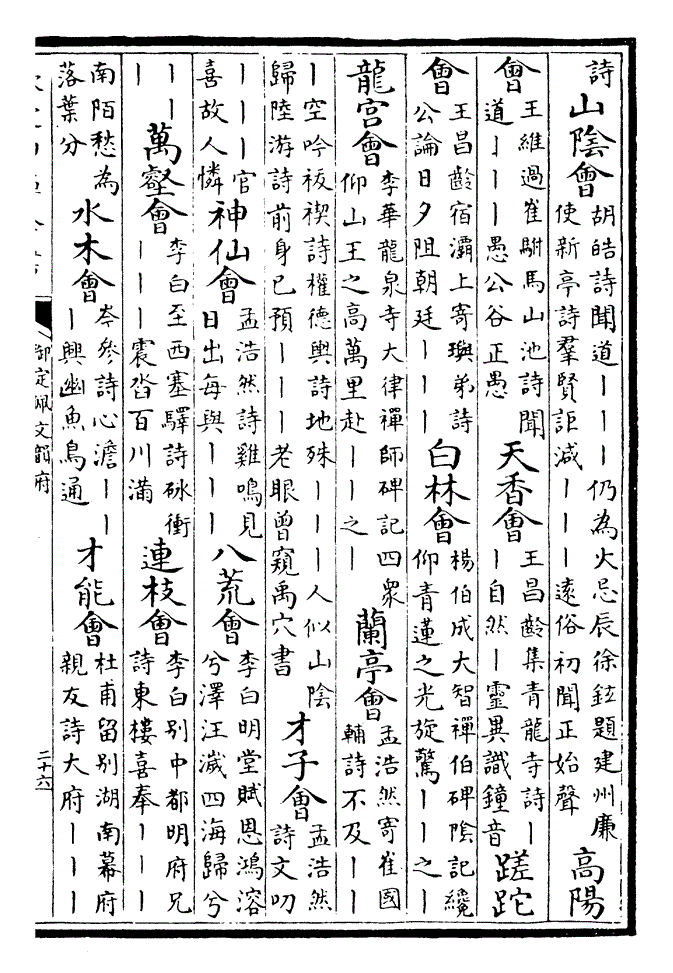 詩山陰會胡皓詩聞道丨丨丨仍為火忌辰徐鉉題建州廉使新亭詩羣賢詎減丨丨丨遠俗初聞正始聲高陽
會王維過崔駙馬山池詩聞道丨丨丨愚公谷正愚天香會王昌齡集青龍寺詩丨丨自然丨靈異識鐘音蹉跎
會王昌齡宿灞上寄璵弟詩公論日夕阻朝廷丨丨丨白林會楊伯成大智禪伯碑陰記纔仰青蓮之光旋驚丨丨之丨
龍宮會李華龍泉寺大律禪師碑記四衆仰山王之高萬里赴丨丨之丨蘭亭會孟浩然寄崔國輔詩不及丨丨
丨空吟祓禊詩權德輿詩地殊丨丨丨人似山陰歸陸游詩前身已預丨丨丨老眼曾窺禹穴書才子會孟浩然詩文叨
丨丨丨官喜故人憐神仙會孟浩然詩雞鳴見日出每與丨丨丨八荒會李白明堂賦恩鴻溶兮澤汪濊四海歸兮
丨丨丨萬壑會李白至西塞驛詩砯衝丨丨丨震沓百川滿連枝會李白别中都明府兄詩東樓喜奉丨丨丨
南陌愁為落葉分水木會岑參詩心澹丨丨丨興幽魚鳥通才能會杜甫留别湖南幕府親友詩大府丨丨丨
御定佩文韻府
二十六